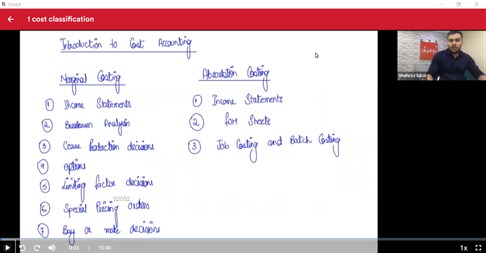 1 cost classification
Introduction to Cost Accounting
Marginal Costing
① Income Statements
② Breakeven Analysis
③ Cease Production decisions
④ options
⑤ Limiting factor decisions
⑥ Special Pricing orders
⑦ Buy or make decisions
Absorbtion Costing
① Income Statements
② FOH Sheets
③ Job Costing and Batch Costing
32032
0:03
15:40
1x